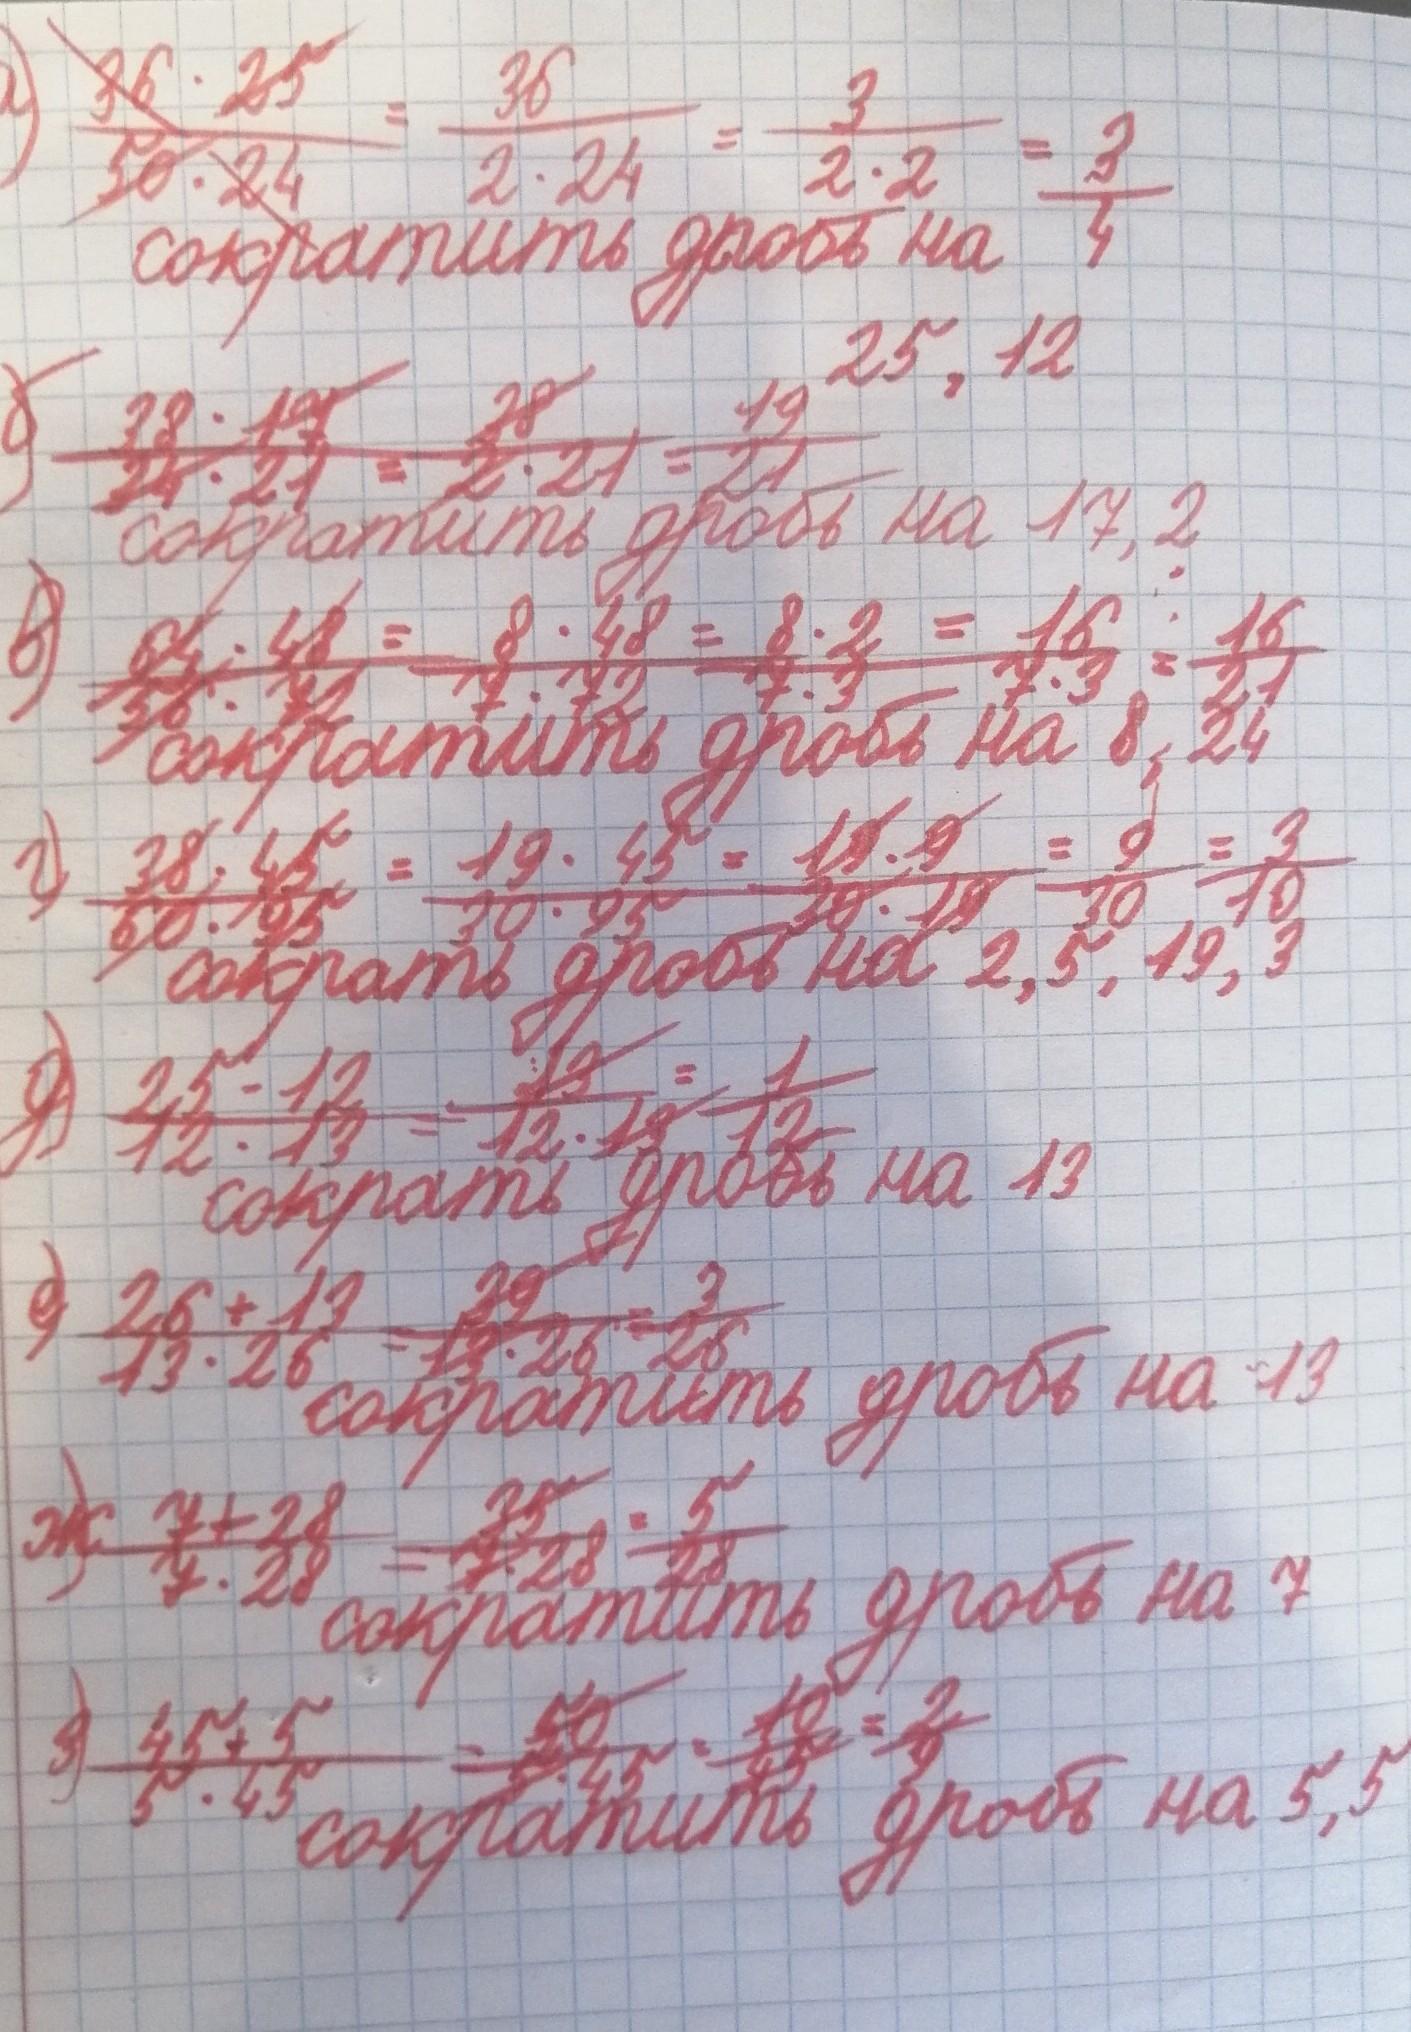 а) 36 · 25 / 50 · 24 = 36 / 2 · 24 = 3 / 2 · 2 = 3 / 4
сократить дробь на
25, 12
б) 38 · 17 / 34 · 21 = 38 / 2 · 21 = 19 / 21
сократить дробь на 17, 2
в) 64 · 48 / 56 · 72 = 8 · 48 / 7 · 72 = 8 · 2 / 7 · 3 = 16 / 7 · 3 = 16 / 21
сократить дробь на 8, 24
г) 38 · 45 / 60 · 95 = 19 · 45 / 30 · 95 = 19 · 9 / 30 · 19 = 9 / 30 = 3 / 10
сократь дробь на 2, 5, 19, 3
д) 25 - 12 / 12 · 13 = 13 / 12 · 13 = 1 / 12
сократь дробь на 13
е) 26 + 13 / 13 · 26 = 39 / 13 · 26 = 3 / 26
сократить дробь на 13
ж) 7 + 28 / 7 · 28 = 35 / 7 · 28 = 5 / 28
сократить дробь на 7
з) 45 + 5 / 5 · 45 = 50 / 5 · 45 = 10 / 45 = 2 / 9
сократить дробь на 5, 5